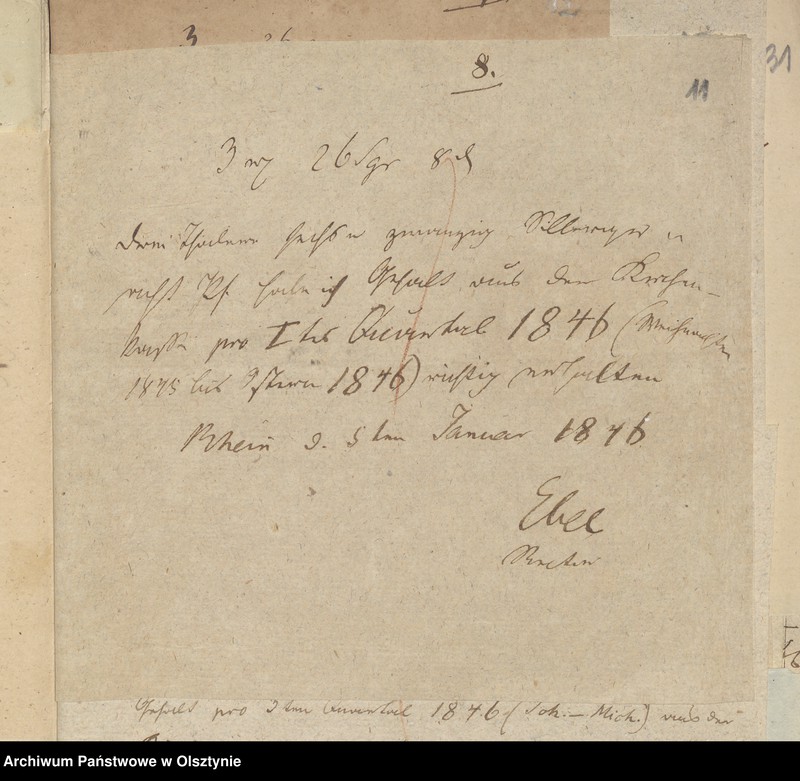 8.
11
31
3 rℓ 26 Sgr 8 ₰
Drei Thaler sechs u zwanzig Silbergr u
acht Pf habe ich Gehalt aus der Kirchen-
kasse pro Ites Quartal 1846 (Weihnachten
1845 bis Ostern 1846) richtig erhalten
Rhein d. 5ten Januar 1846
Ebel
Rector
Gehalt pro 3ten Quartal 1846 (Joh. – Mich.) aus der
Archiwum Państwowe w Olsztynie